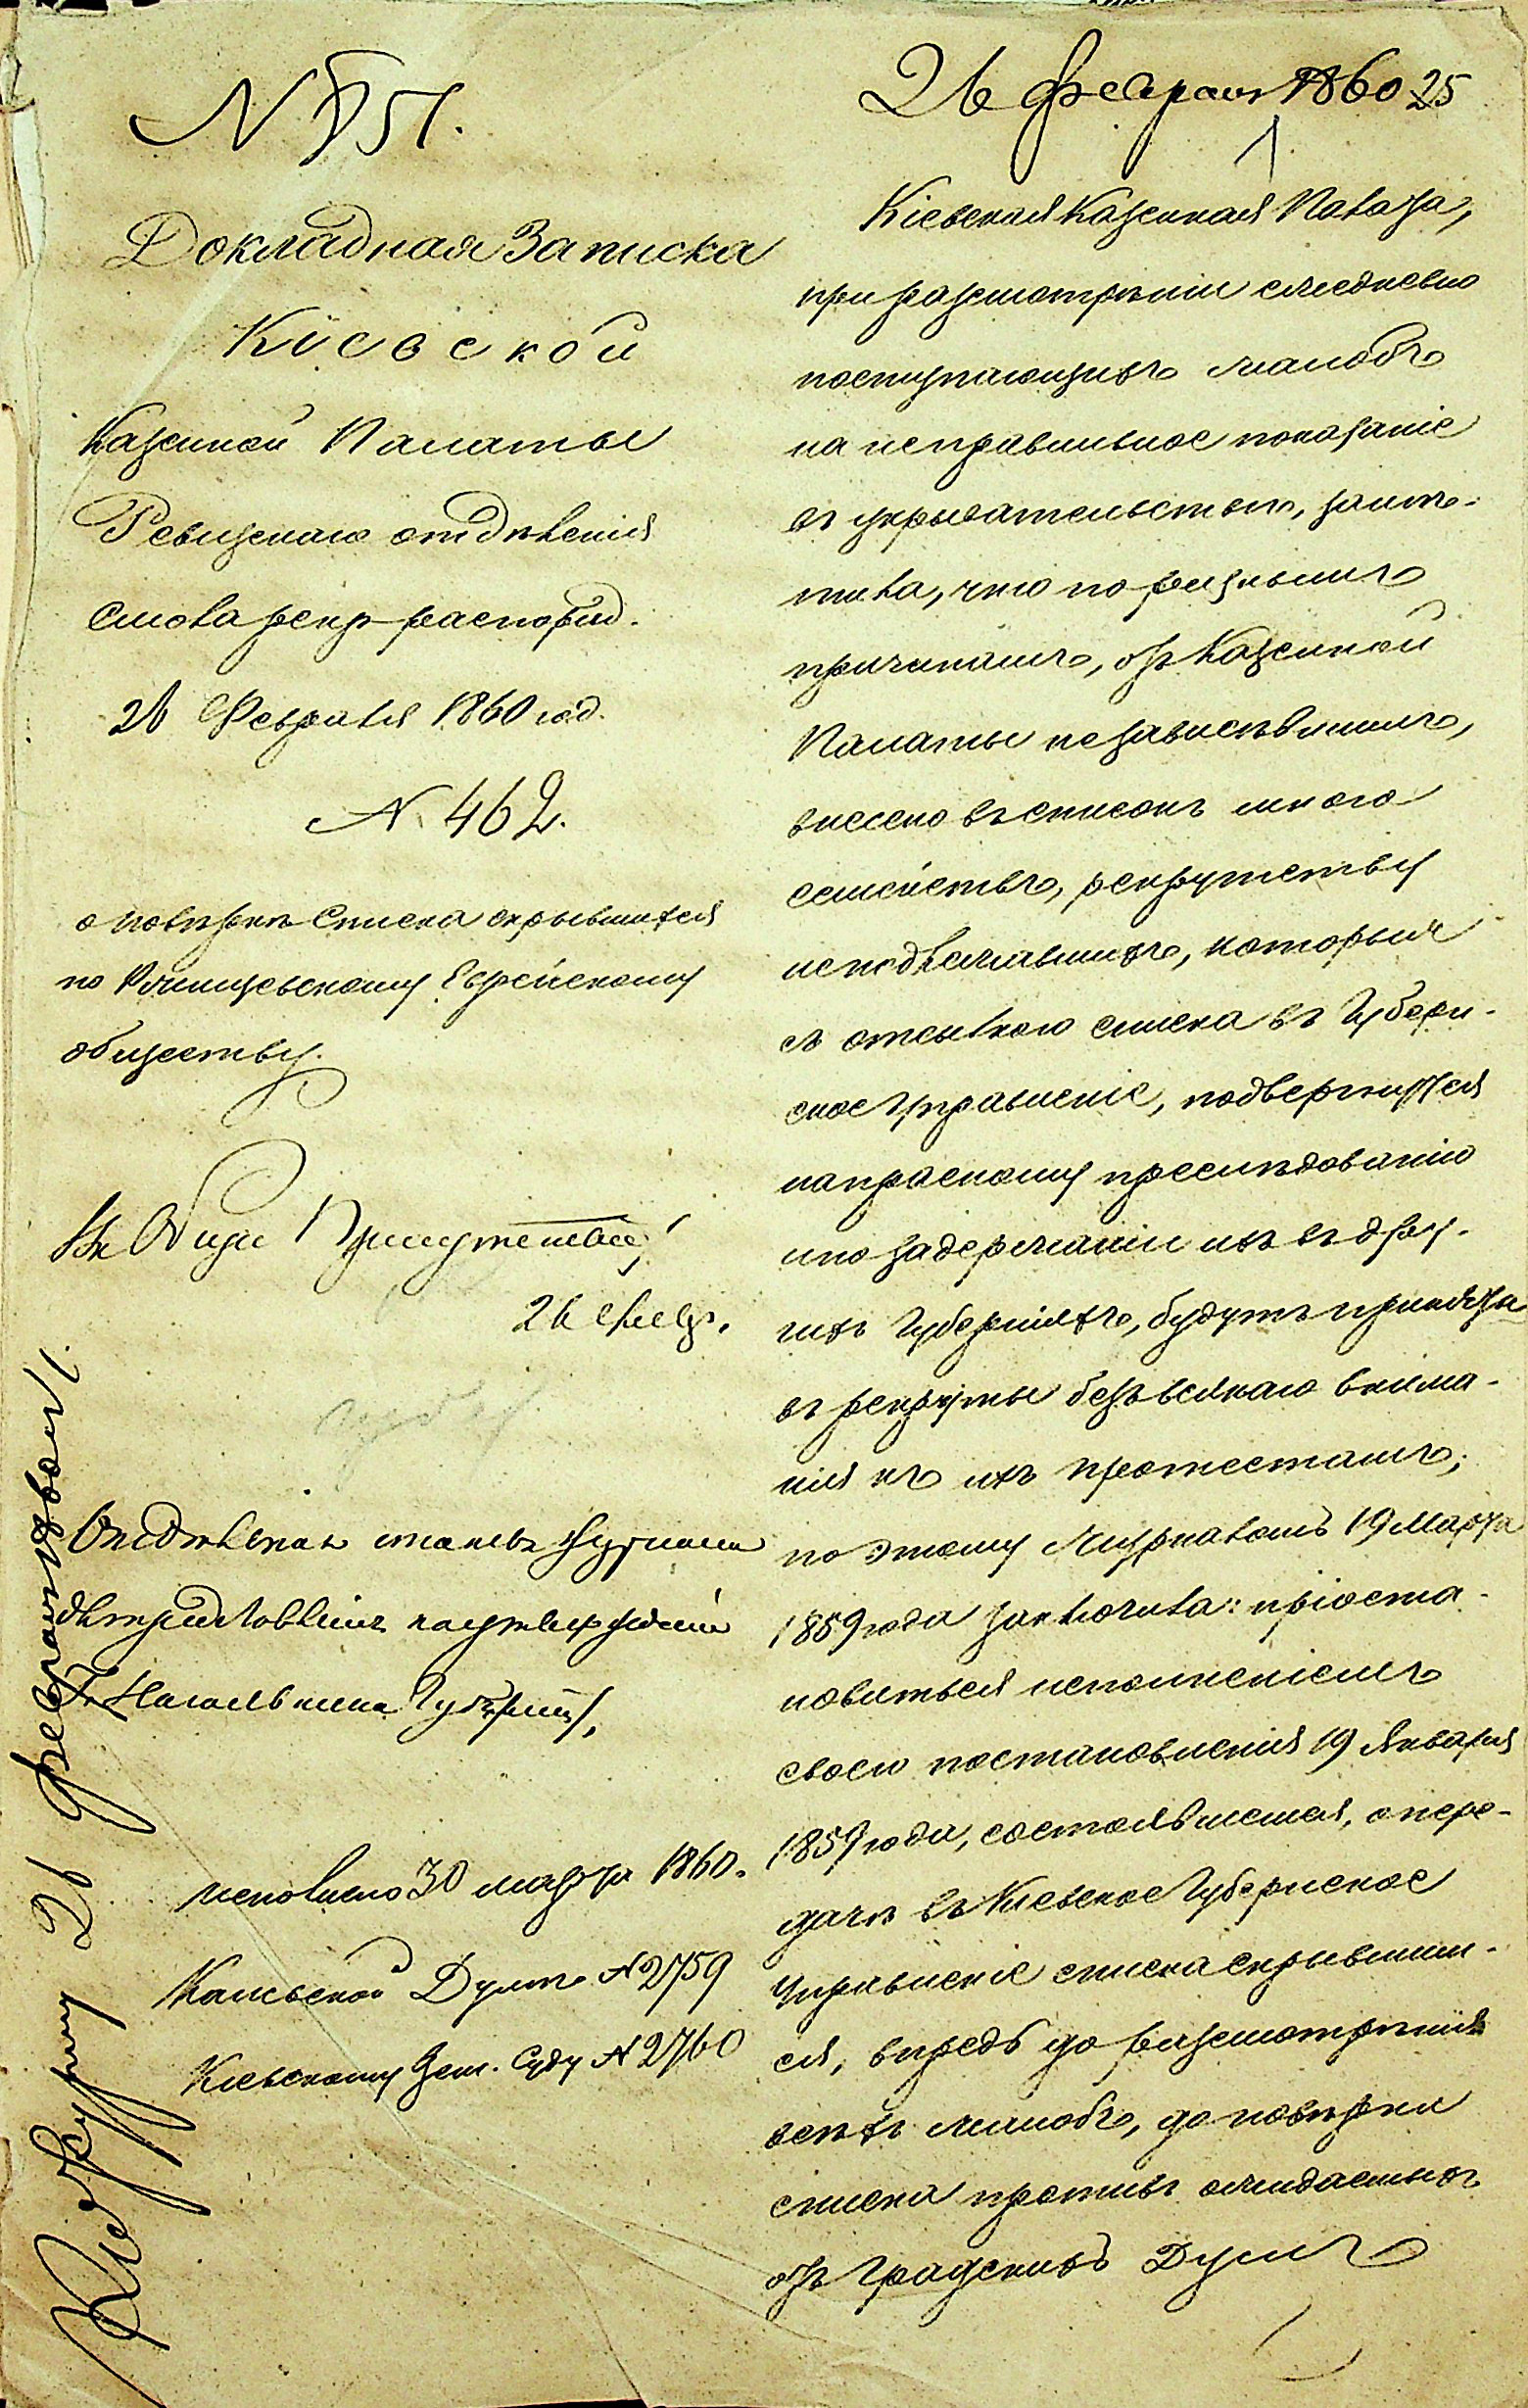 26 Февраля 1860 25
1
№ 151.
Докладная Записка
Кіевской
Казенной Палаты
Ревизскаго отдѣленія
Стола рекр. распоряд.
26 Февраля 1860 год.
№ 462.
о повѣркѣ Списка скрывшихся
по Ржищевскому Еврейскому
обществу.
Въ Общее Присутствіе,
26 Февр.
Г. Начальника Губерніи,
исполнено 30 марта 1860.
Думѣ № 2759
Кіевскому Зем. Суду № 2760
26 февраля
Кіевская Казенная Палата,
при разсмотрѣніи ежедневно
поступающихъ жалобъ
на неправильное показаніе
въ укрывательствѣ, замѣ-
тила, что по разнымъ
причинамъ, отъ Казенной
Палаты независѣвшимъ,
внесено въ списокъ много
семействъ, рекрутству
неподлежавшихъ, которыя
съ отсылкою списка въ Губерн-
ское Управленіе, подвергнутся
напрасному преслѣдованію
и по задержаніи ихъ въ дру-
гихъ Губерніяхъ, будутъ приняты
въ рекруты безъ всякаго внима-
нія къ ихъ протестамъ;
по этому Журналомъ 19 Марта
1859 года заключила: пріоста-
новиться исполненіемъ
своего постановленія 19 Января
1859 года, состоявшемся, о пере-
дачѣ въ Кіевское Губернское
Управленіе списка скрывших-
ся, впредь до разсмотрѣнія
всѣхъ жалобъ, до повѣрки
списка противъ ожидаемыхъ
отъ Градскихъ Думъ